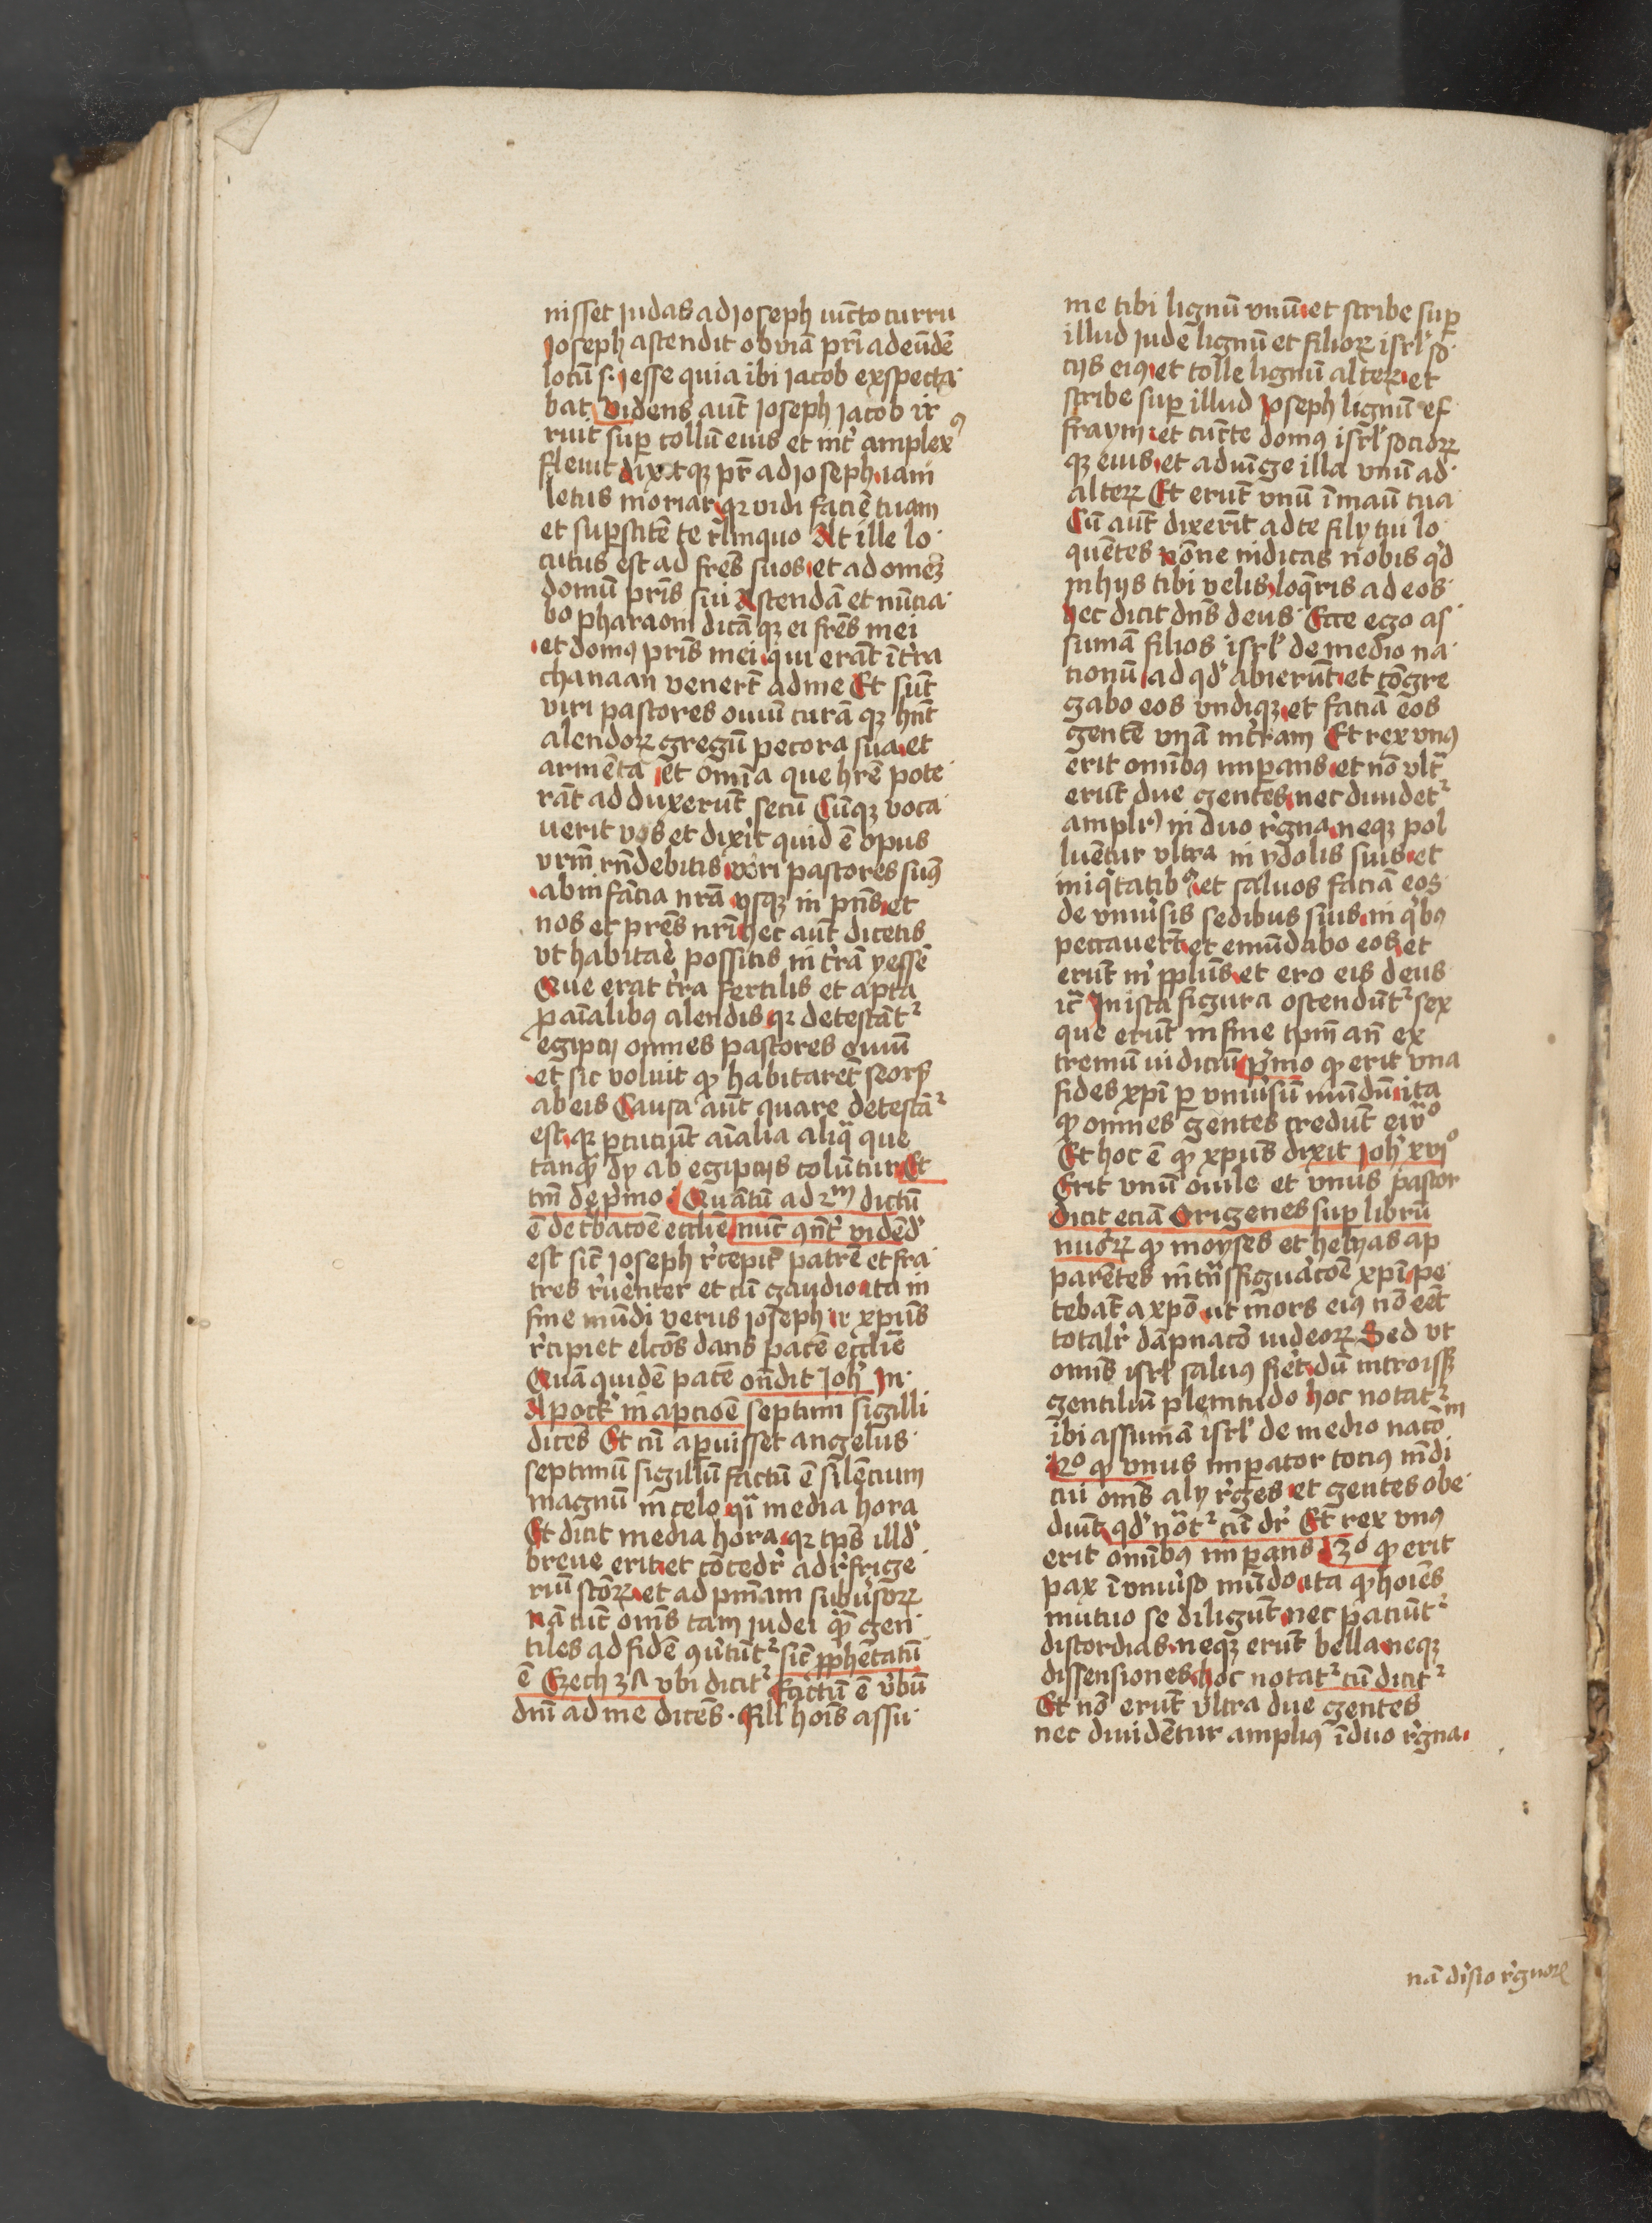 nisset judas ad joseph iuncto curru
Joseph ascendit obuiā pr̄i ad eūdē
locū s· jesse quia ibi jacob exspecta
bat Videns aūt joseph jacob ir
ruit sup̲ collū eius et int̓ amplexꝰ
fleuit dixitqꝫ pr̄ ad joseph iam
letus moriar qꝛ vidi faciē tuam
et sup̲stitē te r̓linquo At ille lo
cutus est ad fr̄es suos et ad omeꝫ
domū pr̄is sui Ascendā et nūcia
bo pharaoni dicā qꝫ ei fr̄es mei
et domꝰ pr̄is mei qui erāt ī t̓ra
chanaan venerūt ad me Et sūt
viri pastores ouiū curā qꝫ hn̄t
alendoꝝ gregū pecora sua et
armēta et omīa que hr̄e pote
rāt adduxerūt secū Cūqꝫ voca
uerit vos et dixit quid ē opus
vrm̄ rn̄debitis viri pastores sumꝰ
ab infācia nrā vsqꝫ in pn̄s et
nos et pr̄es nr̄i hec aūt dicetis
vt habitare possitis in t̓ra yessē
Que erat t̓ra fertilis et apta
ꝓ aīalibꝰ alendis qꝛ detestāt᷑
egiptij omnes pastores ouiū
et sic voluit ꝙ habitaret seorsꝫ
ab eis Causa aūt quare detestā᷑
est qꝛ p̲cuciūt aīalia aliq̄ que
tanqꝫ dy ab egiptijs colūtur Et
tm̄ de p̓mo Quātū ad 2ᵐ dictū
ē de t̓bacōe eccl̄ie nūc ꝯn̄t̓ vidēd̓
est sic̄ joseph r̓cepit patrē et fra
tres r̓uēnter et cū gaudio ita in
fine mūdi verus joseph ·i· xp̄us
r̓cipiet el̄cos dans pacē eccl̄ie
Quā quidē pacē on̄dit joh̓ in
Apoc̓ in ap̲cioē septimi sigilli
dicēs Et cū ap̲uisset angelus
septimū sigillū factū ē silēcium
magnū in celo q̄i media hora
Et dicit media hora qꝛ tp̄s illd̓
breue erit et cōcedr̓ ad r̓frige
riū sc̄oꝝ et ad pn̄iam subu̓soꝝ
nā tūc om̄s tam judei qꝫ gen
tiles ad fidē ꝯu̓tūt᷑ sic̄ ꝓphetatū
ē Ezech 3Λ vbi dicit᷑ Factū ē v̓bū
dn̄i ad me dicēs · Fili hoīs assu
me tibi lignū vnū et scribe sup̲
illud jude lignū et filioꝝ isrl̓ so
cijs eiꝰ et tolle lignū alterꝫ et
scribe sup̲ illud joseph lignū ef
fraym et cuncte domꝰ isrl̓ socioꝝ
qꝫ eius et adiūge illa vnū ad
alterꝫ Et erūt vnū ī manu tua
Cū aūt dixerīt ad te filij tui lo
quētes nōne indicas nobis qd̓
in hijs tibi velis loq̄ris ad eos
hec dicit dn̄s deus · Ecce ego as
sumā filios isrl̓ de medio na
tionū ad qd̓ abierūt et cōgre
gabo eos vndiqꝫ et faciā eos
gentē vnā in t̓ram Et rex vnꝰ
erit omībꝰ imp̲ans et nō vlt̄
erūt due gentes nec diuidet᷑
ampl̄ꝰ in duo r̓gna neqꝫ pol
luētur vltra in ydolis suis et
iniq̓tatibꝰ et saluos faciā eos
de vniu̓sis sedibus suis in q̓bꝰ
peccauerūt et emūdabo eos et
erūt m̓ pp̄lus et ero eis deus
ic̄ In ista figura ostendūt᷑ sex
que erūt in fine tp̄m an̄ ex
tremū iudiciū p̓mo ꝙ erit vna
fides xp̄i p̲ vniu̓sū mūdū ita
ꝙ omnes gentes credūt ei v̓o
Et hoc ē ꝙ xp̄us dixit joh̓ xvjº
Erit vnū ouile et vnus pastor
Dicit eciā Origenes sup̲ librū
nu̓oꝝ ꝙ moyses et helyas ap
parētes in trn̄sfigu̓acōe xp̄i pe
tebāt a xp̄o ut mors eiꝰ nō eēt
total̓r dāpnacō iudeoꝝ Sed vt
omīs isrl̓ saluꝰ fieret dū introisꝫ
gentiliū plenitudo hoc notat᷑
ibi assumā isrl̓ de medio nacōm
2º ꝙ vnus imp̲ator tociꝰ mūdi
cui om̄s alij r̓ges et gentes obe
diūt qd̓ no̓t᷑ cū dr̓ Et rex vnꝰ
erit omībꝰ imp̲ans 3º ꝙ erit
pax ī vniu̓so mūdo ita ꝙ hoīes
mutuo se diligūt nec paciūt᷑
discordias neqꝫ erūt bella neqꝫ
dissensiones hoc notat᷑ cū dicit᷑
Et nō erūt vltra due gentes
nec diuidētur ampliꝰ ī duo r̓gna
nā di̓sio r̓gnoꝝ